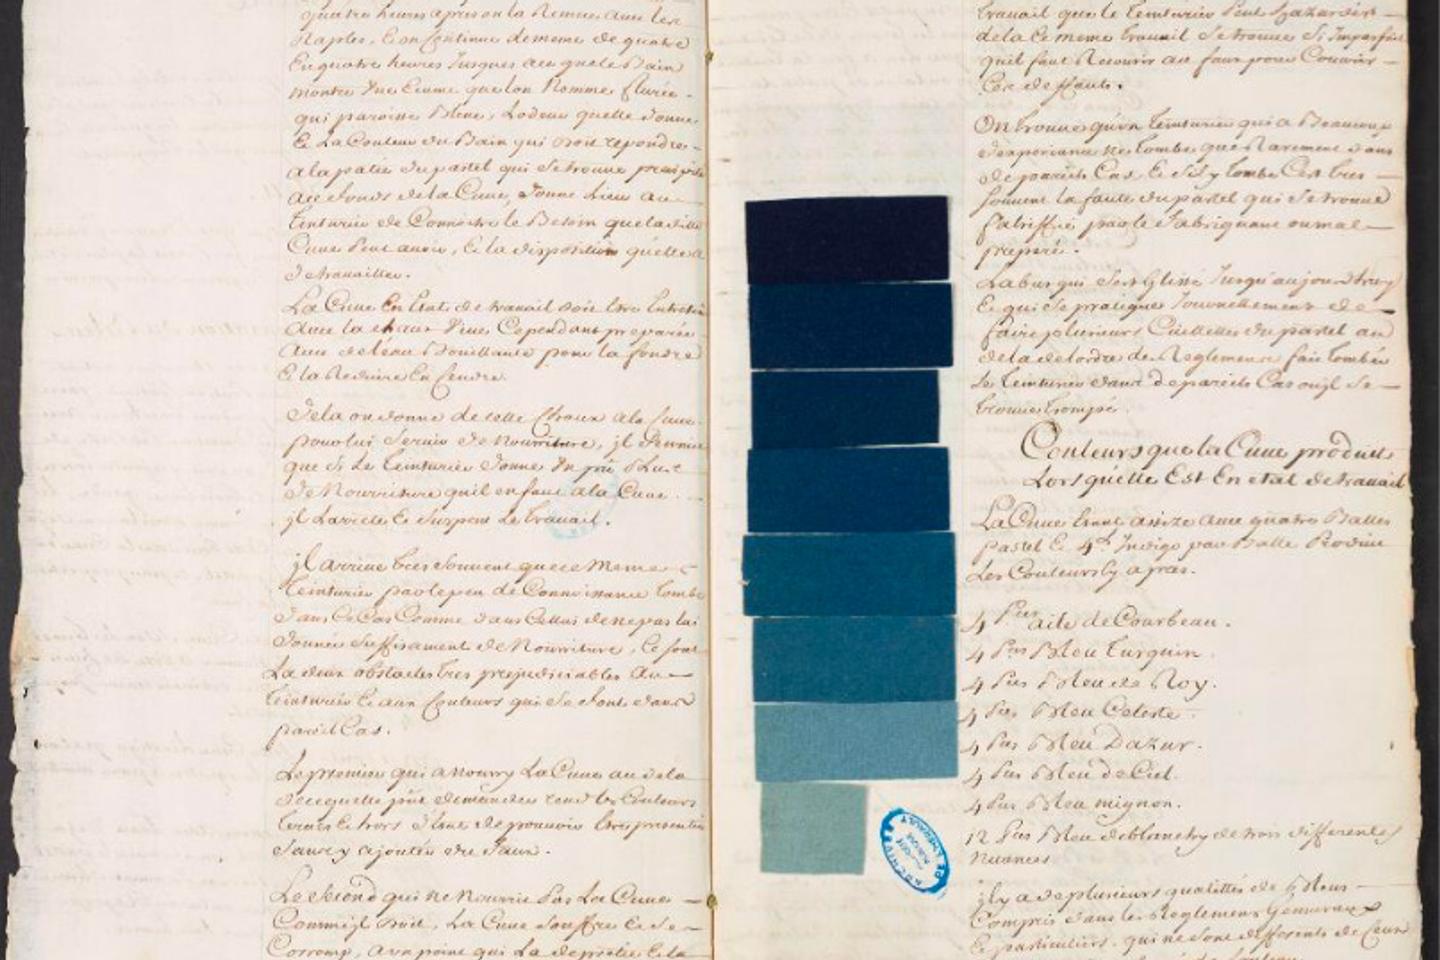 quatre heures apres on la Remue avec les
Naples, Et on Continue de meme de quatre
En quatre heures Jusques a ce que le Bain
montre Une Ecume que lon Nomme fleurée
qui paroisse Bleue, Lodeur quelle donne
Et La Couleur du Bain qui doit repondre
a la patée du pastel qui se trouve
au fonds de la Cuve, donne Lieu au
teinturier de Connoitre le Besoin que la
Cuve peut avoir, Et la disposition quelle a
de travailler.
La Cuve En Etat de travail doit Etre
avec la chaux Vive Cependant preparée
avec de l'eau Bouillante pour la fondre
Et la Reduire En Cendre.
De la on donne de cette Chaux a la Cuve
pour lui Servir de Nourriture, jl
que Si Le teinturier donne Un peu plus
de Nourriture quil en faut a la Cuve
jl Larrete Et Suspent Le travail.
jl arrive tres Souvent que ce Meme
teinturier par le peu de Connoissance tombe
dans Ce Cas Comme dans Celluy de ne pas lui
donner Suffisament de Nourriture, Ce sont
La deux obstacles tres prejudiciables au
teinturier Et aux Couleurs qui Se font dans
pareil Cas.
Le premier qui a Nourry La Cuve au dela
de ce quelle peut demander rend les Couleurs
ternes Et hors d'Etat de pouvoir
Sans y ajouter du faux.
Le Second qui ne Nourrit Pas La Cuve
Comme jl doit, La Cuve Souffre Et Se
Corromp, a un point qui La
travail que le teinturier Peut hazarder
de la Ce meme travail Se trouve Si Imparfait
quil faut Recourir au faux pour Couvrir
Ces deffauts.
On trouve qu'un teinturier qui a Beaucoup
d'experiance ne tombe que Rarement dans
de pareils Cas, Et Sil y tombe Cest tres
Souvent la faute du pastel qui Se trouve
falsiffié par le fabriquant ou mal
preparé.
Labus qui Sest Glissé Jusqu'aujourdhuy
Et qui Se pratique Journellement de
faire plusieurs Cueilletes du pastel au
dela de lordre des Reglements fait tomber
Le teinturier dans de pareils Cas ou jl Se
trouve trompé.
Couleurs que la Cuve produit
Lors quelle Est En etat de travail
La Cuve Etant assize avec quatre Balles
Pastel Et 4 Indigo par Balle Produit
Les Couleurs Cy apres.
4 Pces aile de Courbeau.
4 Pces Bleu Turquin.
4 Pces Bleu de Roy.
4 Pces Bleu Celeste.
4 Pces Bleu Dazur.
4 Pces Bleu de Ciel.
4 Pces Bleu mignon.
12 Pces Bleu deblanchy de trois differentes
Nuances
jl y a de plusieurs qualittés de Bleus
Compris dans les Reglemens Generaux
Et particuliers, qui ne Sont differents de Ceux